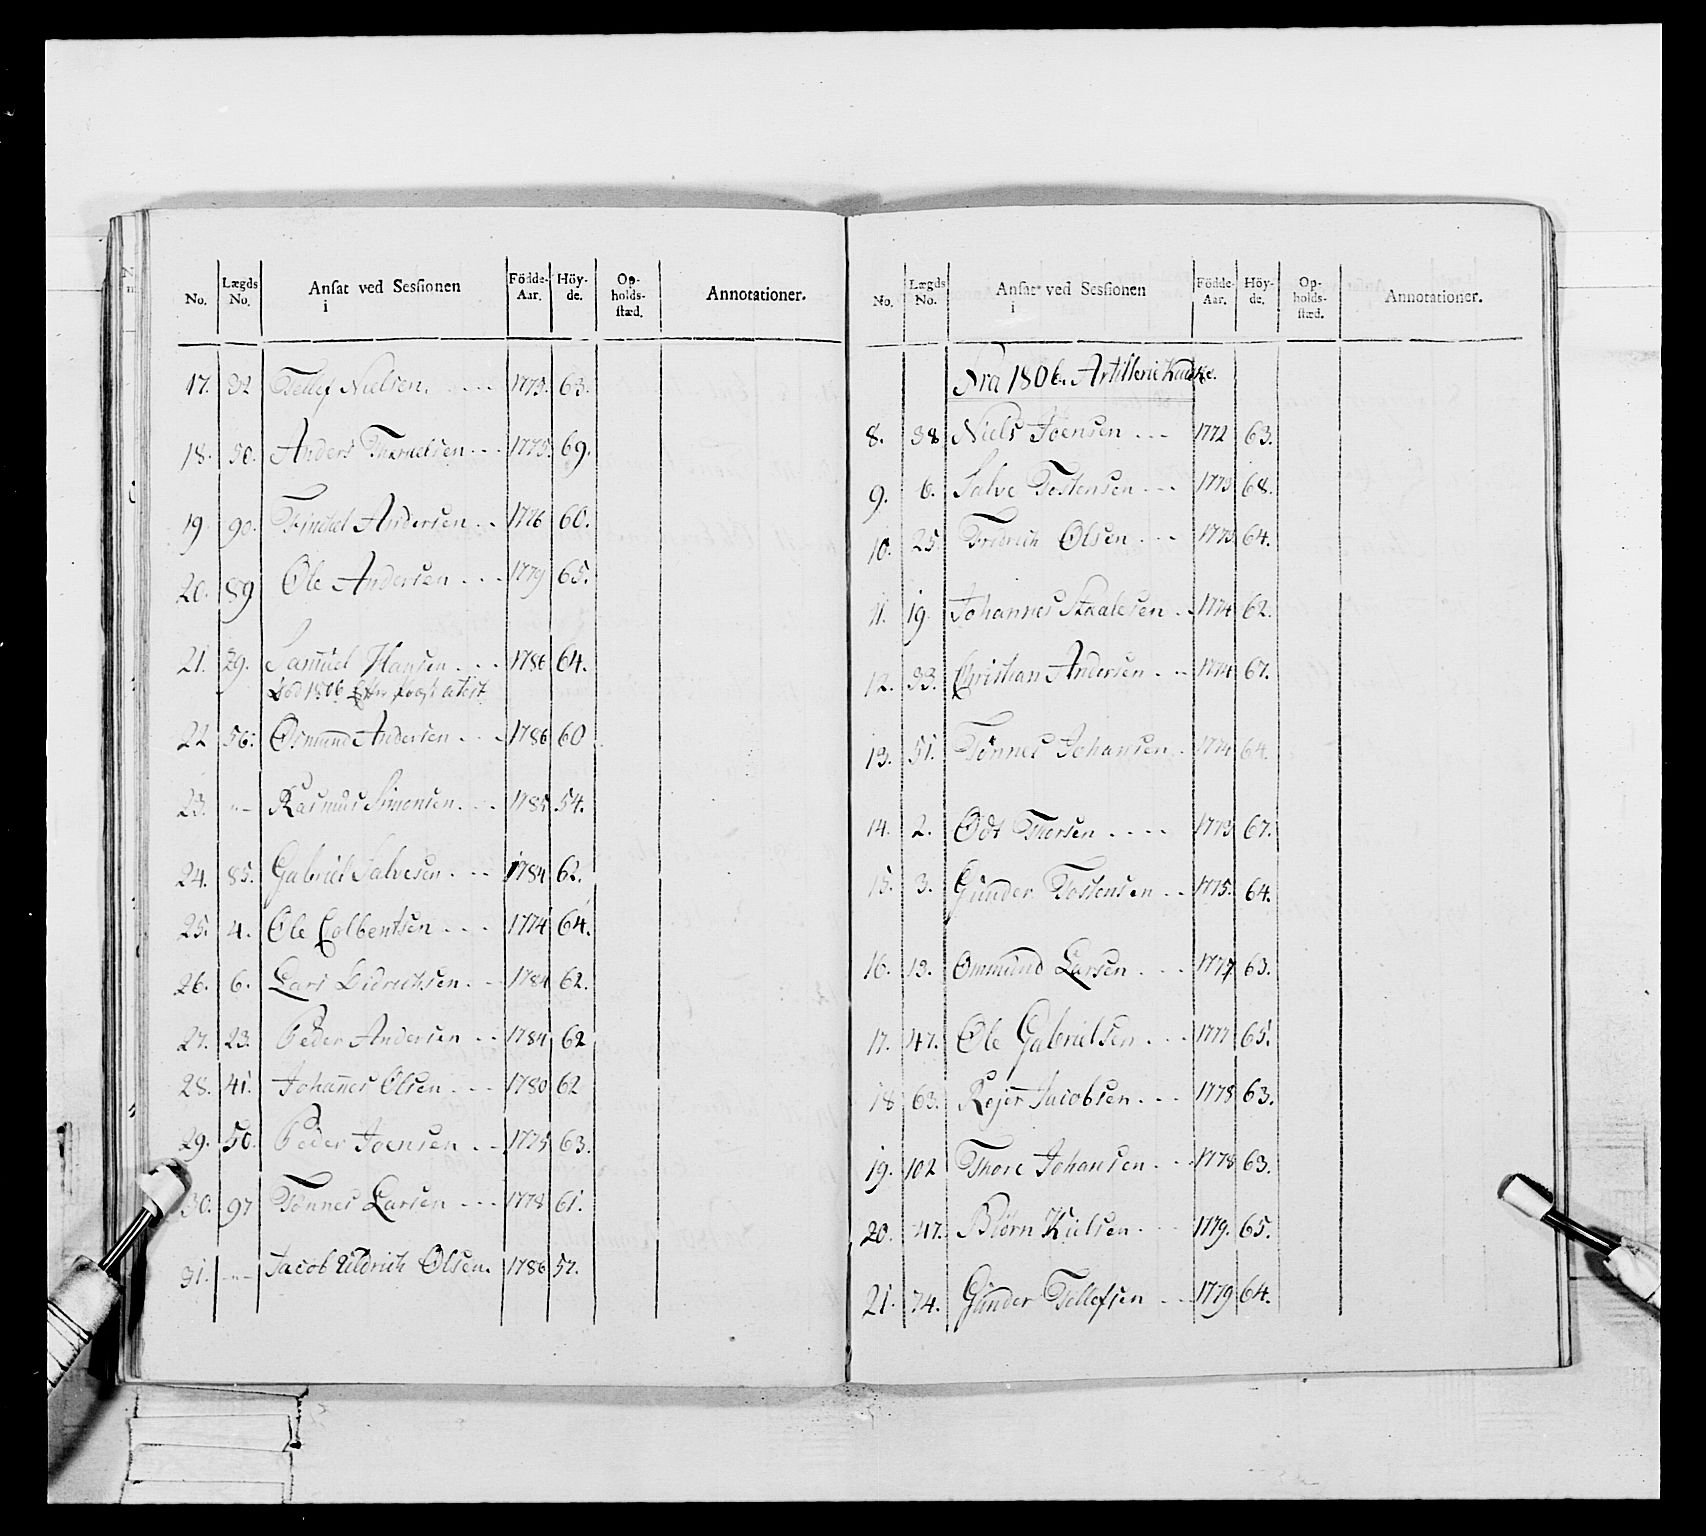 No. Lægds No. Ansat ved Sessionen i Födde-Aar. Höy-de. Op-holds-stæd. Annotationer.
17. 32 Tellef Nielsen. 1773. 63.
18. 50. Anders 1775. 69.
19. 90. Andersen 1776 60.
20. 89 Ole Andersen 1779 65.
21. 29. Samuel Hansen 1786 64.
1806
22 56. Osmund Andersen 1786 60
23. " - Rasmus Simonsen 1785 54.
24. 85. Gabriel Salvesen 1784 62.
25. 4. Ole Colbentsen 1774 64.
26. 6. Lars Didrichsen 1784 62.
27. 23. Peder Andersen 1784 62
28. 41. Johannes Olsen 1780 62
29. 50. Peder Joensen 1775 63.
30. 97 Tönnes Larsen 1778 61.
31. - " - Jacob Uldrich Olsen. 1786 57.
No. Lægds No. Ansat ved Sessionen i Födde-Aar. Höy-de. Op-holds-stæd. Annotationer.
Fra 1806. Artillerie
8. 38 Niels Joensen 1772 63.
9. 6. Salve Tostensen 1773 68.
10. 25 Fridrich Olsen 1773 64.
11. 19 Johannes Staalesen 1774 62.
12. 33. Christian Andersen 1774 67.
13. 51. Tönnes Johansen 1774 64.
14. 2. Odt Thorsen 1773 67.
15. 3. Gunder Tostensen 1775. 64.
16. 13. Ommund Larsen 1777 63.
17. 47. Ole Gabrielsen 1777 65.
18 63. Rejer Jacobsen 1778 63.
19. 102 Thore Johansen 1778 63.
20. 47. Biörn Kielsen 1779. 65.
21. 74. Gunder Tellefsen 1779 64.